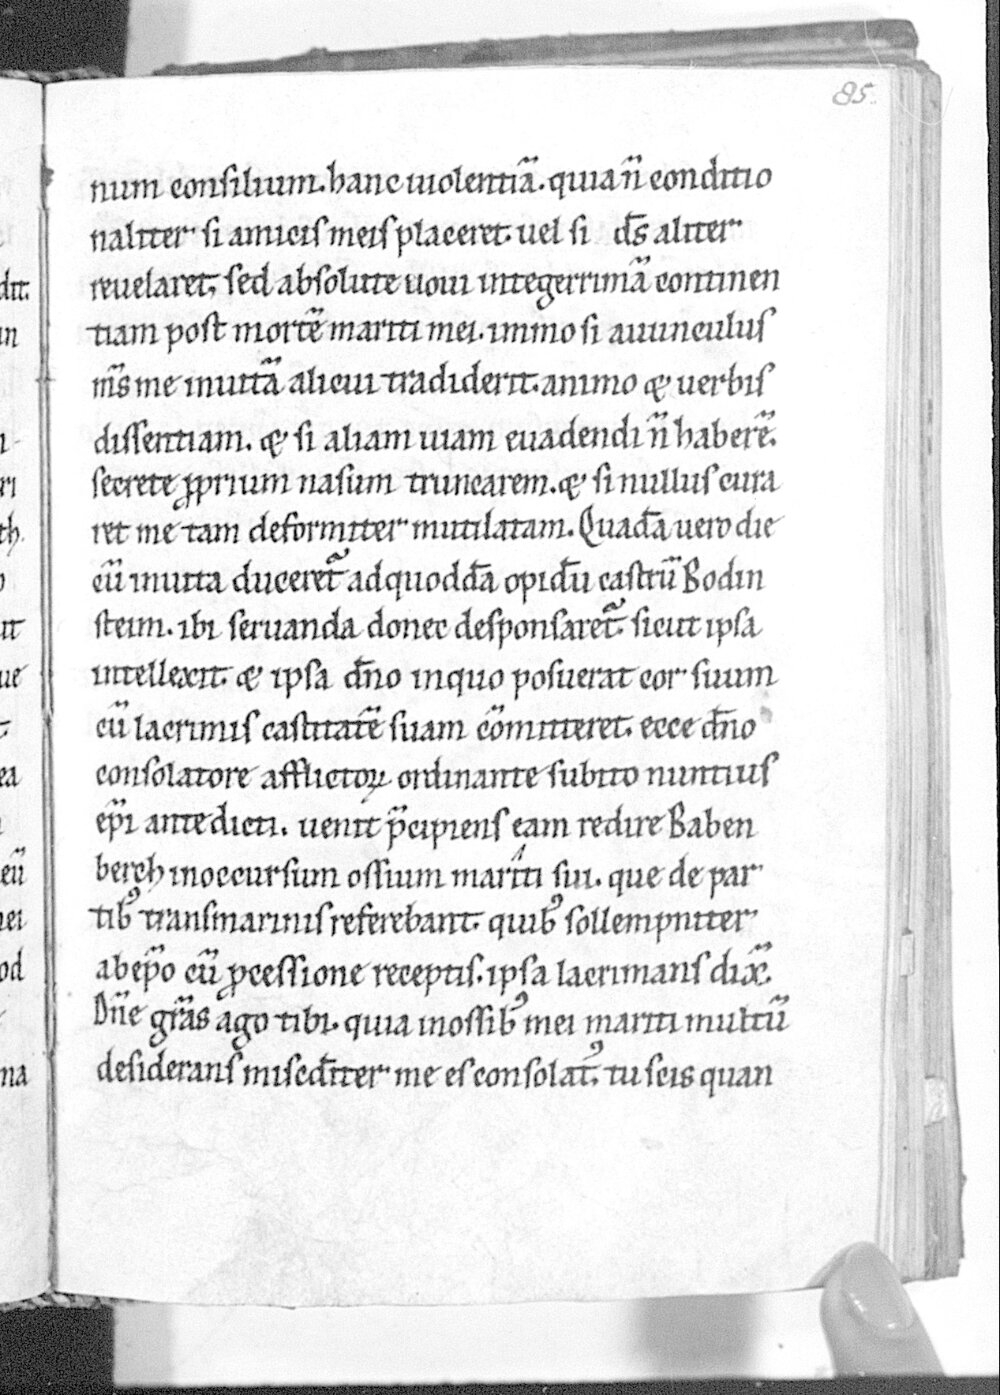 85.
num consilium. hanc uiolentiā. quia n̄ conditio
naliter si amicis meis placeret. uel si d̄s aliter
reuelaret; sed absolute uoui integerrimā continen
tiam post mortē mariti mei. immo si auunculus
m̄s me inuitā alicui tradiderit. animo & uerbis
dissentiam. & si aliam uiam euadendi n̄ haberē.
secrete ꝓprium nasum truncarem. & si nullus cura
ret me tam deformiter mutilatam. Quadā uero die
cū inuita duceret᷑ ad quoddā opidū castrū Bodin
stein. ibi seruanda donec desponsaret᷑ sicut ipsa
intellexit. & ipsa dn̄o in quo posuerat cor suum
cū lacrimis castitatē suam cōmitteret. ecce dn̄o
consolatore afflictoꝝ ordinante subito nuntius
ep̄i antedicti. uenit p̄cipiens eam redire Baben
berch in occursum ossium mariti sui. que de par
tib᷒ transmarinis referebant. quib᷒ sollempniter
ab ep̄o cū ꝓcessione receptis. ipsa lacrimans dix̄.
Dn̄e grās ago tibi. quia in ossib᷒ mei mariti multū
desiderans misc̄diter me es consolat᷒. tu scis quan